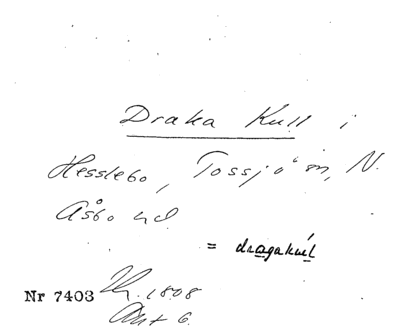 Draka Kull i
Hesslebo, Tossjö sn, N.
Åsbo hd
= dragakull
Nr 7403
1808
Ant 6.